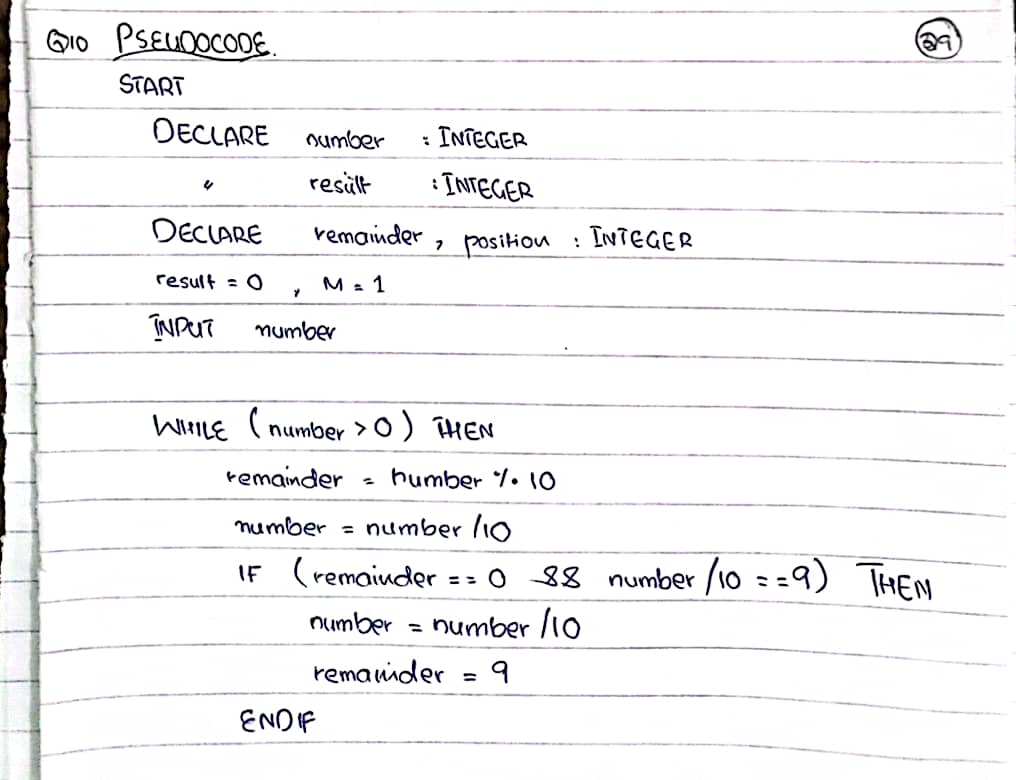 Q10 PSEUDOCODE. 29
START
DECLARE number : INTEGER
" result : INTEGER
DECLARE remainder, position : INTEGER
result = 0, M = 1
INPUT number
WHILE (number > 0) THEN
remainder = number % 10
number = number /10
IF (remainder == 0 && number /10 == 9) THEN
number = number /10
remainder = 9
ENDIF